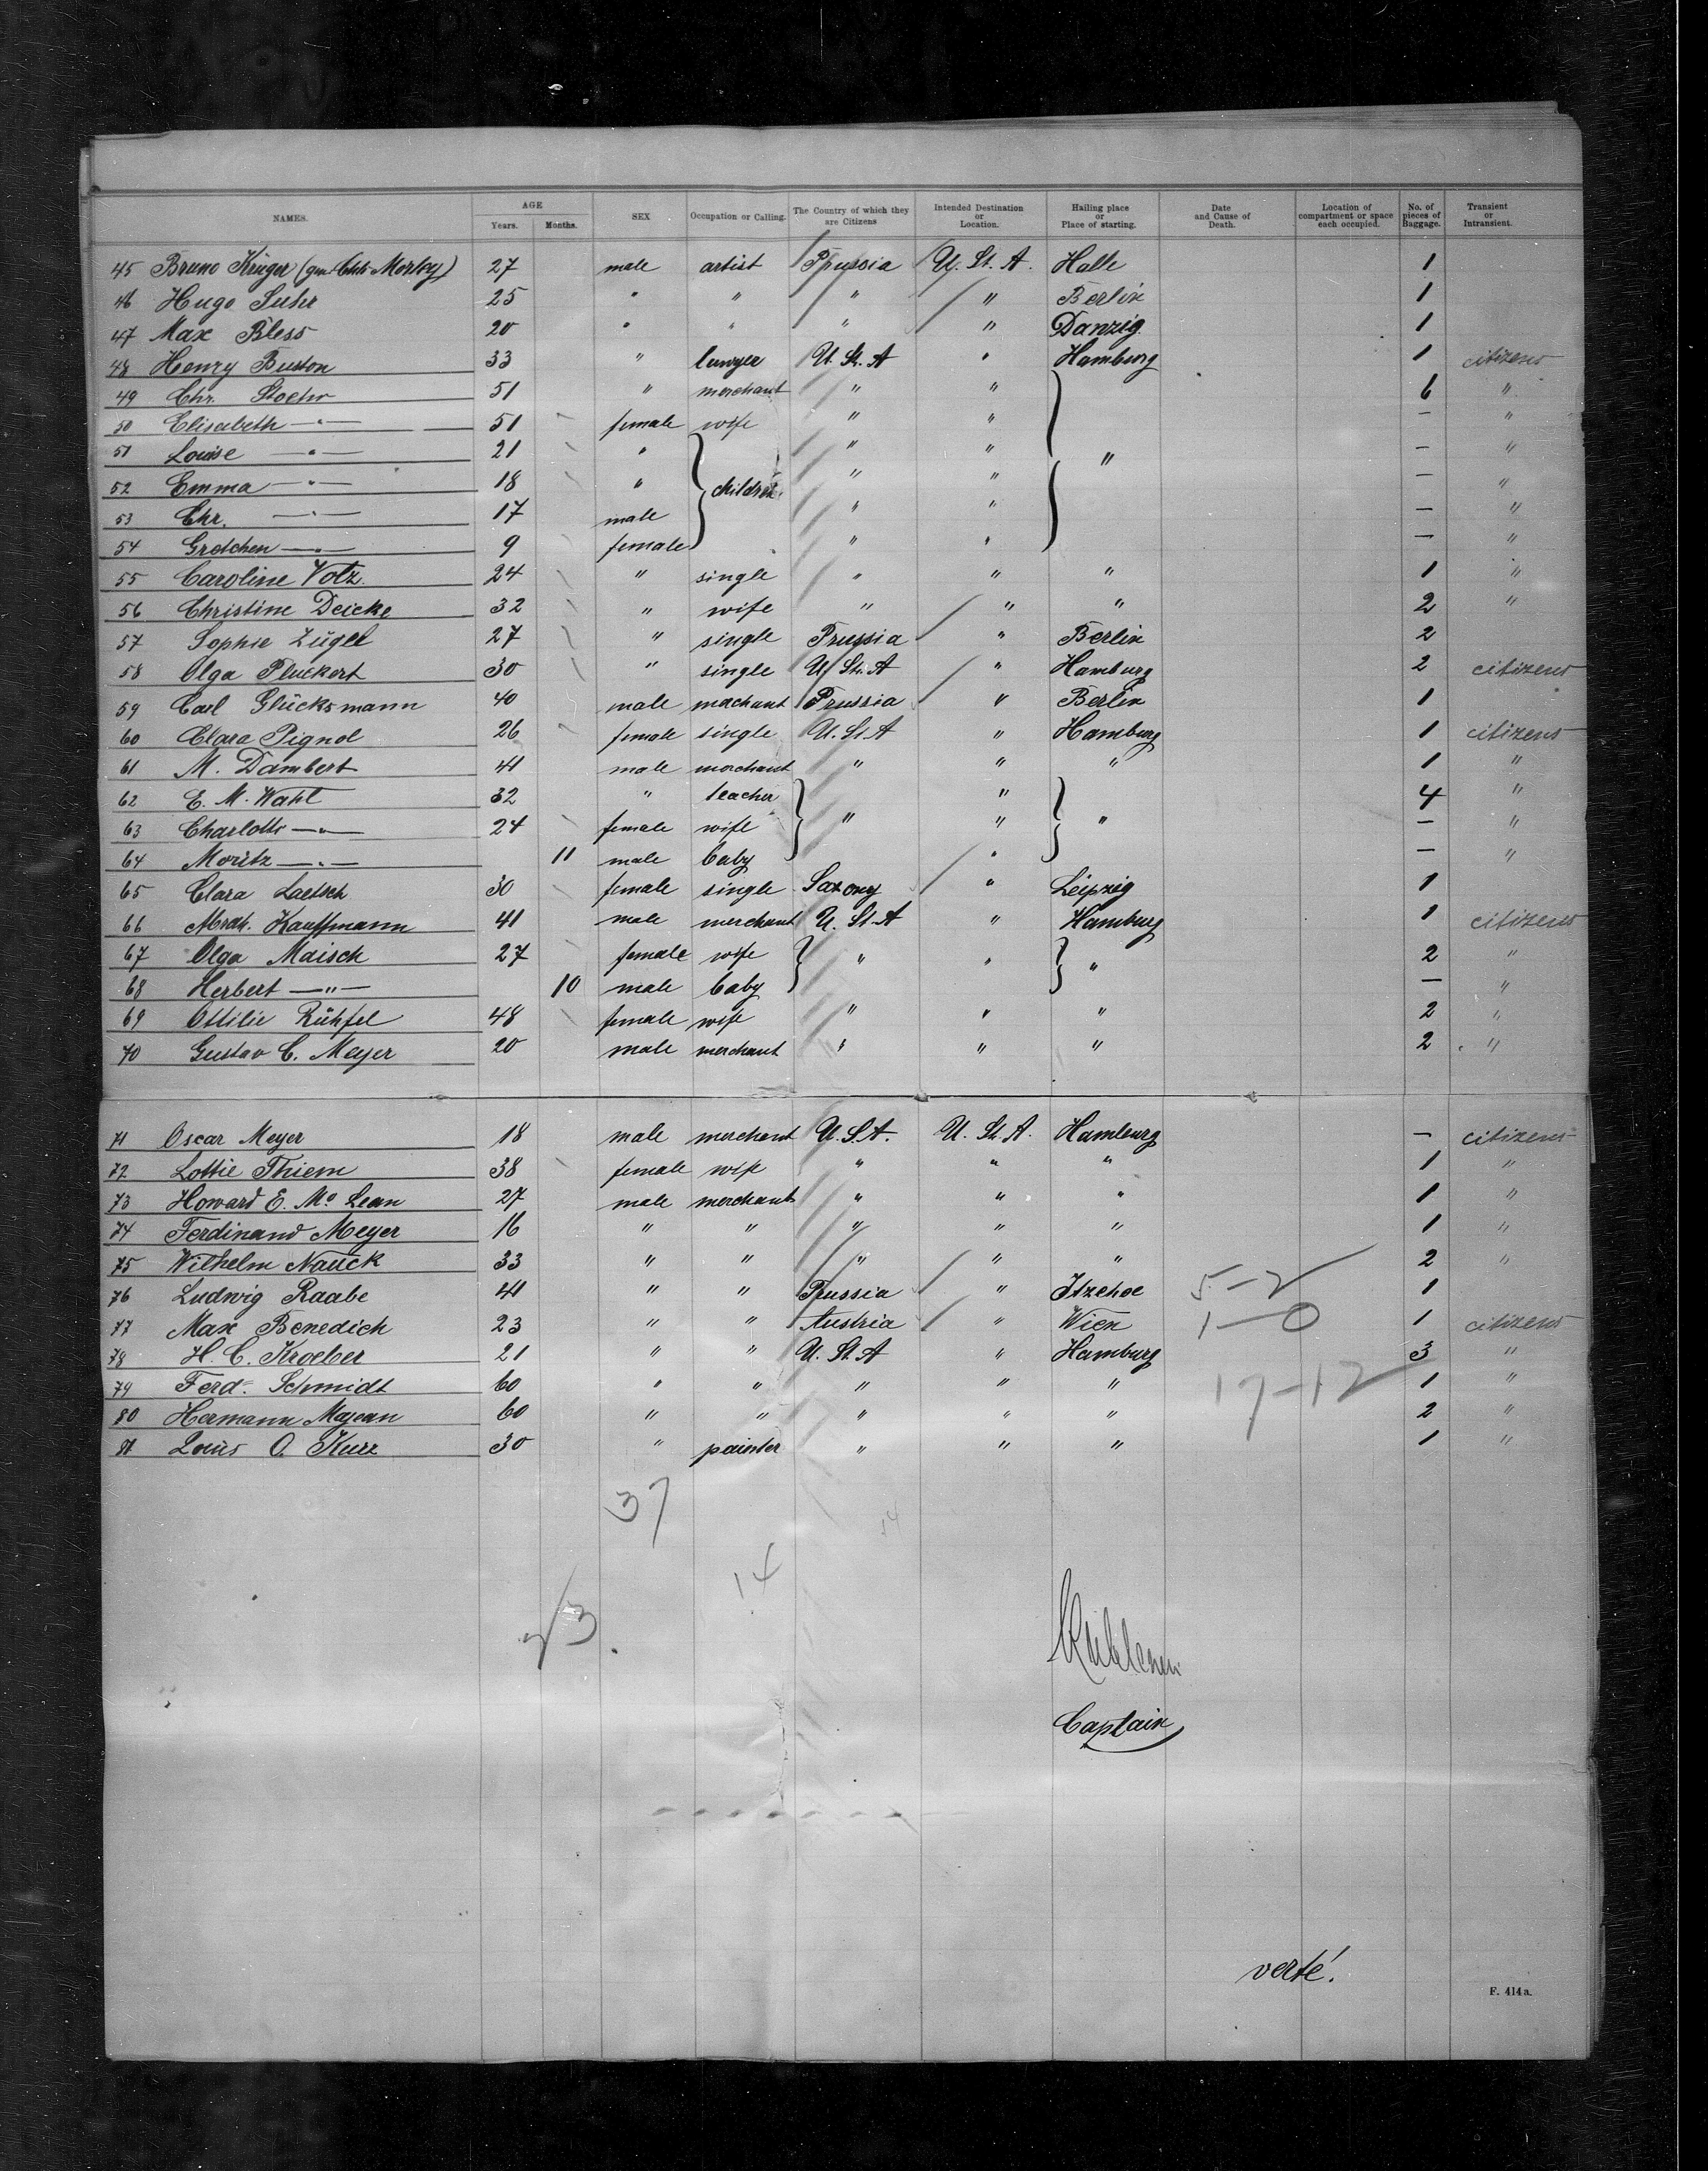 NAMES. AGE Years. Months. SEX Occupation or Calling. The Country of which they are Citizens Intended Destination or Location. Hailing place or Place of starting. Date and Cause of Death. Location of compartment or space each occupied. No. of pieces of Baggage. Transient or Intransient.
45 Bruno Krüger ( Morley) 27 male artist Prussia U. St. A. Halle 1
46 Hugo Suhr 25 " " " " Berlin 1
47 Max Bless 20 " " " " Danzig. 1
48 Henry Buston 33 " lawyer U. St. A " Hamburg 1 citizens
49 Chr. Stoehr 51 " merchant " " 6 "
50 Elisabeth —"— 51 female wife " " — "
51 Louise —"— 21 " " " " — "
52 Emma —"— 18 " children " " — "
53 Chr. —"— 17 male " " — "
54 Gretchen —"— 9 female " " — "
55 Caroline Volz. 24 " single " " " 1 "
56 Christine Deicke 32 " wife " " " 2 "
57 Sophie Zügel 27 " single Prussia " Berlin 2
58 Olga Pluckert 30 " single U. St. A " Hamburg 2 citizens
59 Carl Glücksmann 40 male machant Prussia " Berlin 1
60 Clara Pignol 26 female single U. St A " Hamburg 1 citizens
61 M. Dambert 41 male merchant " " " 1 "
62 E. M. Wahl 32 " teacher " 4 "
63 Charlotte —"— 24 female wife " " " — "
64 Moritz —"— 11 male baby " — "
65 Clara Laetsch 30 female single Saxony " Leipzig 1
66 Kauffmann 41 male merchant U. St A " Hamburg 1 citizens
67 Olga Maisch 27 female wife " " " 2 "
68 Herbert —"— 10 male baby — "
69 Ottilie Rühfel 48 female wife " " " 2 "
70 Gustav C. Meyer 20 male merchant " " " 2 "
71 Oscar Meyer 18 male merchant U. S. A. U. St. A. Hamburg — citizens
72 Lottie Thiem 38 female wife " " " 1 "
73 Howard E. Mc Lean 27 male merchant " " " 1 "
74 Ferdinand Meyer 16 " " " " " 1 "
75 Wilhelm Nauck 33 " " " " " 2 "
76 Ludwig Raabe 41 " " Prussia " Itzehoe 5-2 1
77 Max Benedich 23 " " Austria " Wien 1-0 1 citizens
78 H. C. Kroeber 21 " " U. St. A " Hamburg 3 "
79 Ferd. Schmidt 60 " " " " " 17-12 1 "
80 Hermann Majean 60 " " " " " 2 "
81 Louis O. Kurz 30 " painter " " " 1 "
37
14
14
Captain
verté.
F. 414a.